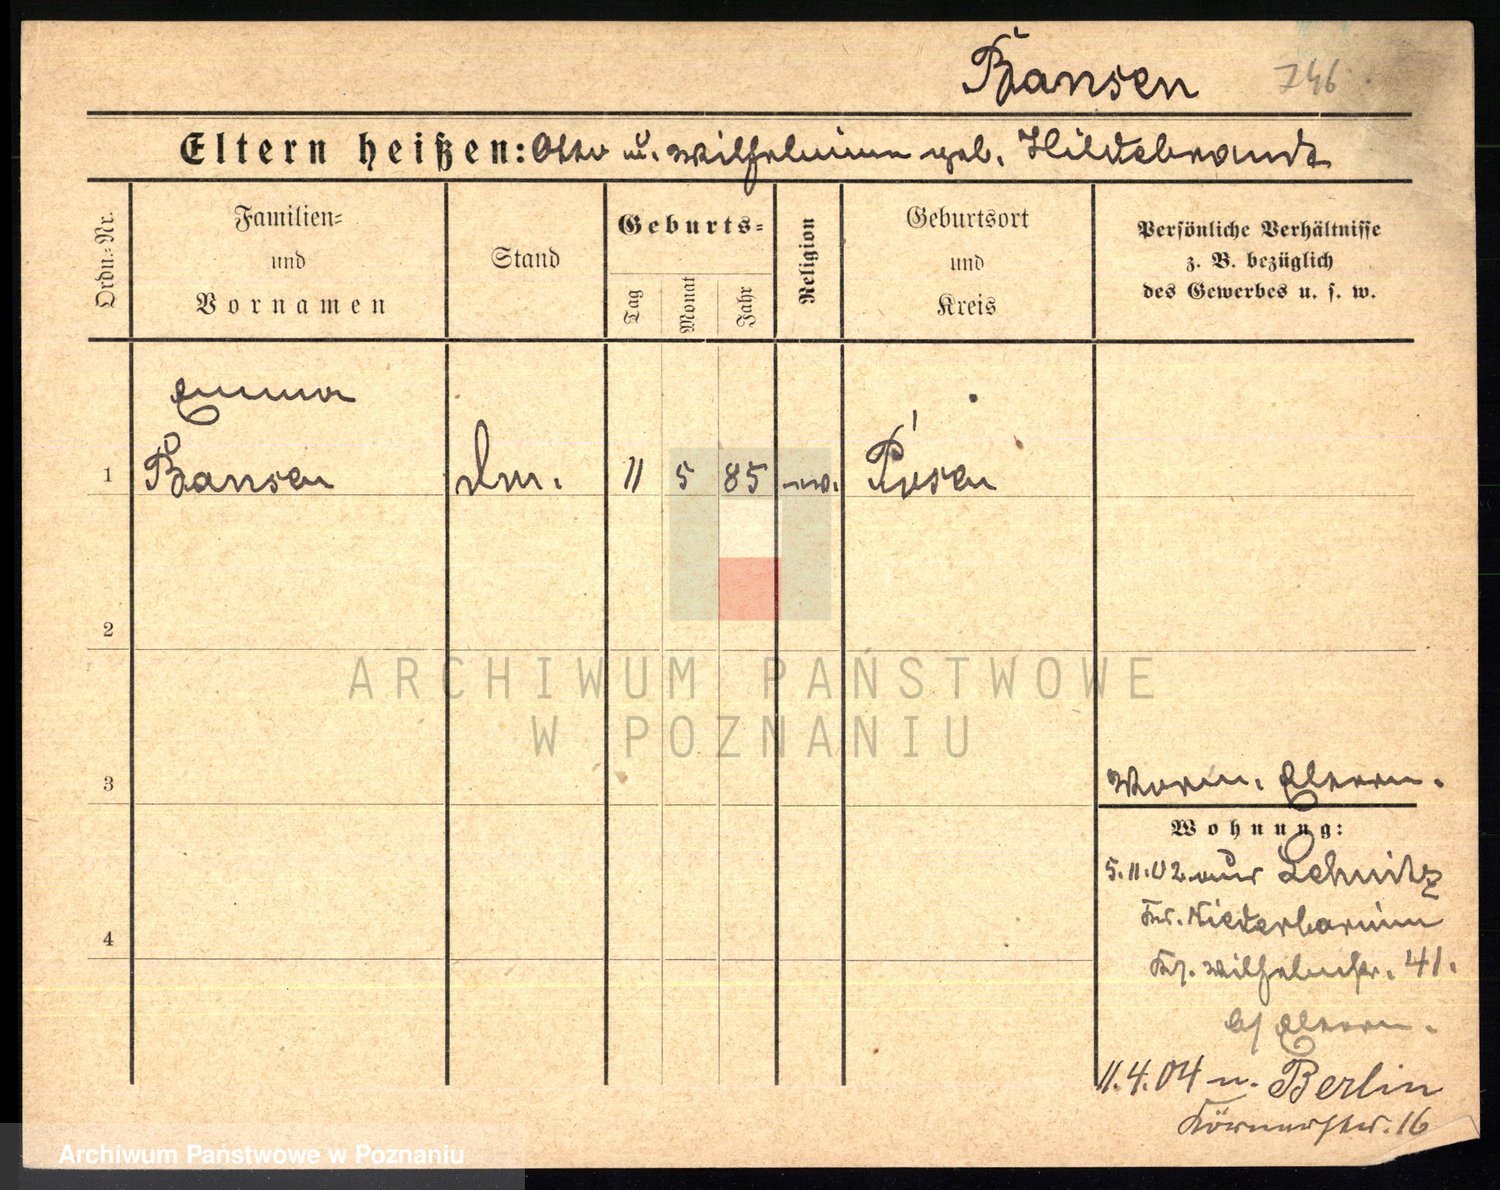 Bansen 746
Eltern heißen: Otto u. Wilhelmine geb. Hildebrandt
Ordn.-Nr.
Familien-
und
Vornamen
Stand
Geburts-
Tag
Monat
Jahr
Religion
Geburtsort
und
Kreis
Persönliche Verhältnisse
z. B. bezüglich
des Gewerbes u. s. w.
Emma
1 Bansen 11 5 85 ev. Posen
2
3
Eltern.
Wohnung:
5.11.02 aus Lehnitz
Kr. Niederbarnim
Wilhelmstr. 41.
b/ Eltern.
4
11.4.04 n. Berlin
Körnerstr. 16
ARCHIWUM PAŃSTWOWE
W POZNANIU
Archiwum Państwowe w Poznaniu